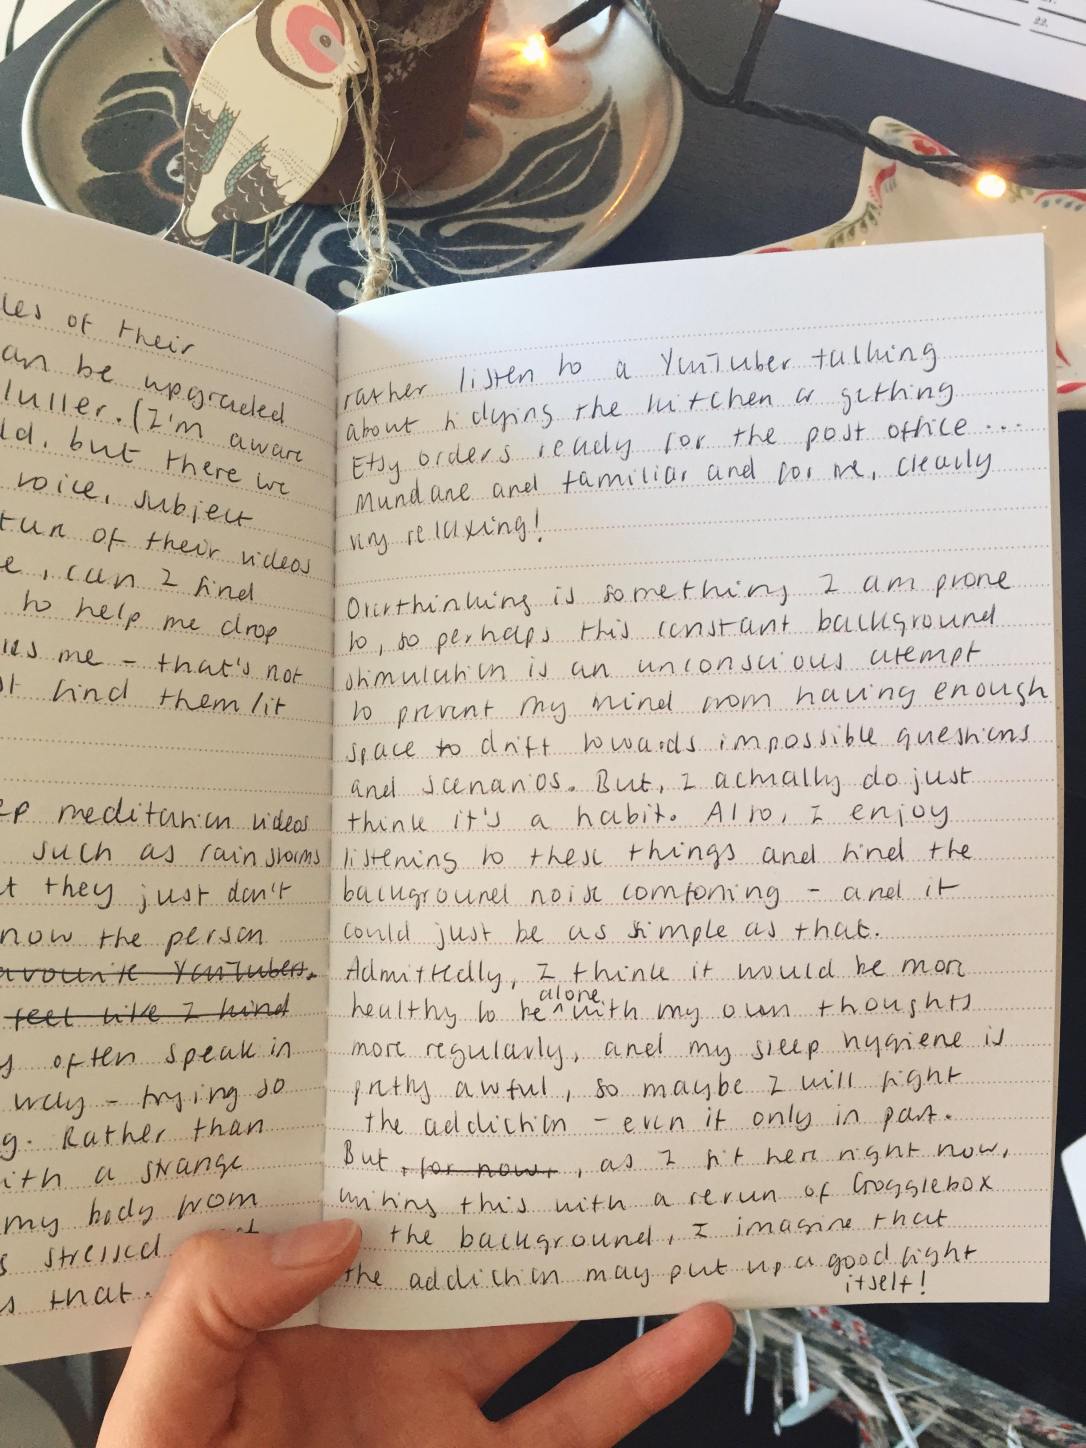 les of their
an be upgraded
luller. (I'm aware
ld, but there we
voice, subject
of their videos
e, can I find
to help me drop
me - that's not
find them/it
ep meditation videos
such as rain storms
t they just don't
now the person
avourite YouTubers.
feel like I kind
y often speak in
way - trying so
g. Rather than
ith a strange
my body from
s stressed
s that.
rather listen to a YouTuber talking
about tidying the kitchen or getting
Etsy orders ready for the post office...
Mundane and familiar and for me, clearly
very relaxing!
Overthinking is something I am prone
to, so perhaps this constant background
stimulation is an unconscious attempt
to prevent my mind from having enough
space to drift towards impossible questions
and scenarios. But, I actually do just
think it's a habit. Also, I enjoy
listening to these things and find the
background noise comforting - and it
could just be as simple as that.
Admittedly, I think it would be more
healthy to be ^alone with my own thoughts
more regularly, and my sleep hygiene is
pretty awful, so maybe I will fight
the addiction - even if only in part.
But, for now, , as I sit here right now,
writing this with a rerun of Gogglebox
the background, I imagine that
the addiction may put up a good fight
itself!
22.